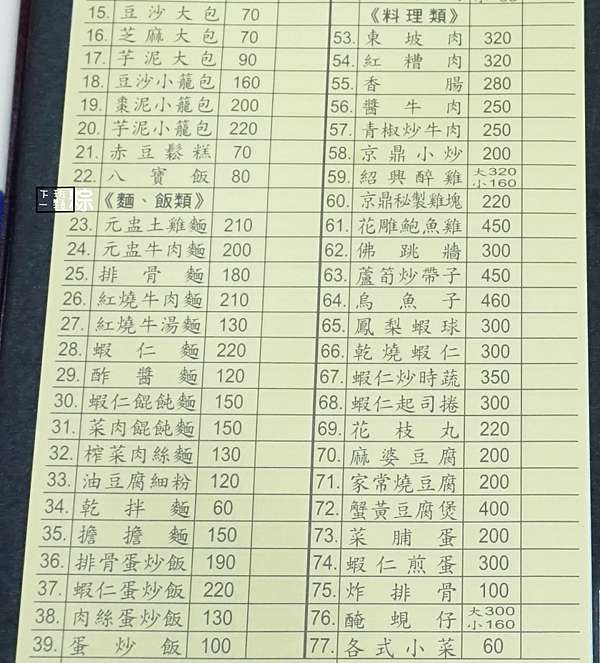 15. 豆沙大包 70
16. 芝麻大包 70
17. 芋泥大包 90
18. 豆沙小籠包 160
19. 棗泥小籠包 200
20. 芋泥小籠包 220
21. 赤豆鬆糕 70
22. 八寶飯 80
《麵、飯類》
23. 元盅土雞麵 210
24. 元盅牛肉麵 200
25. 排骨麵 180
26. 紅燒牛肉麵 210
27. 紅燒牛湯麵 130
28. 蝦仁麵 220
29. 酢醬麵 120
30. 蝦仁餛飩麵 150
31. 菜肉餛飩麵 150
32. 榨菜肉絲麵 130
33. 油豆腐細粉 120
34. 乾拌麵 60
35. 擔擔麵 150
36. 排骨蛋炒飯 190
37. 蝦仁蛋炒飯 220
38. 肉絲蛋炒飯 130
39. 蛋炒飯 100
《料理類》
53. 東坡肉 320
54. 紅糟肉 320
55. 香腸 280
56. 醬牛肉 250
57. 青椒炒牛肉 250
58. 京鼎小炒 200
59. 紹興醉雞 大320 小160
60. 京鼎秘製雞塊 220
61. 花雕鮑魚雞 450
62. 佛跳牆 300
63. 蘆筍炒帶子 450
64. 烏魚子 460
65. 鳳梨蝦球 300
66. 乾燒蝦仁 300
67. 蝦仁炒時蔬 350
68. 蝦仁起司捲 300
69. 花枝丸 220
70. 麻婆豆腐 200
71. 家常燒豆腐 200
72. 蟹黃豆腐煲 400
73. 菜脯蛋 200
74. 蝦仁煎蛋 300
75. 炸排骨 100
76. 醃蜆仔 大300 小160
77. 各式小菜 60